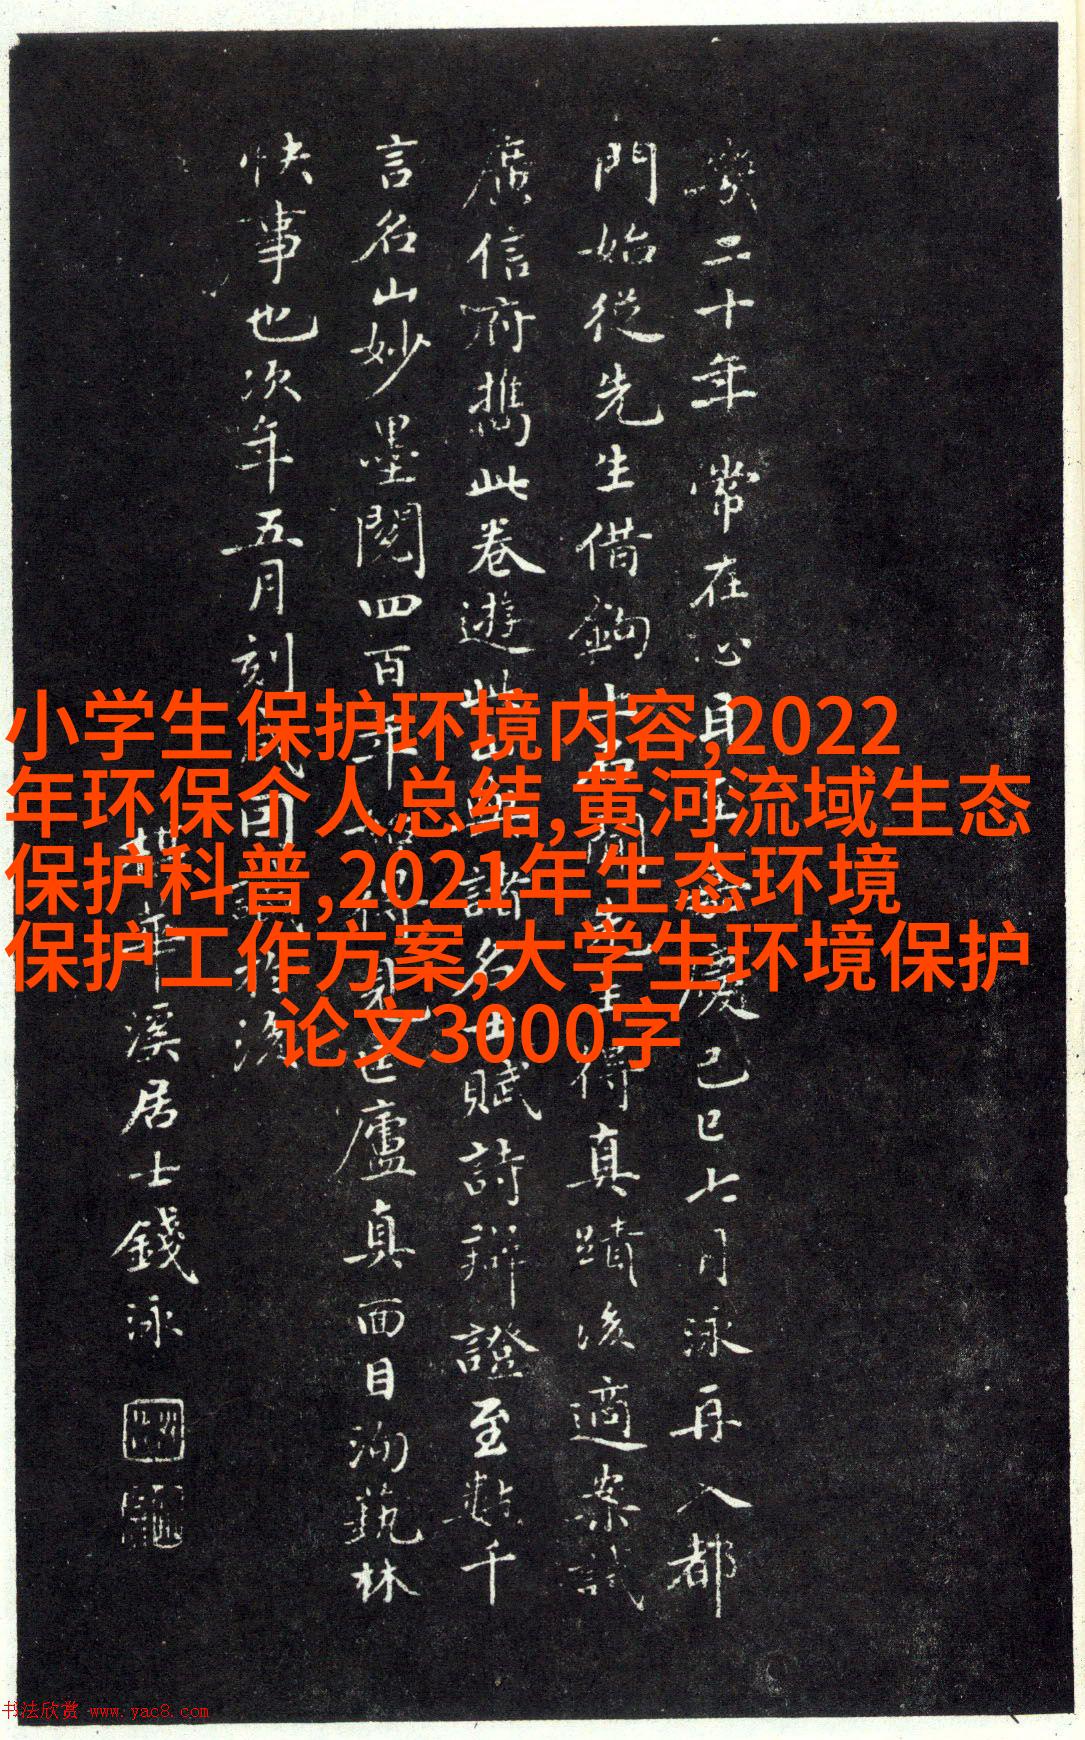 幾二十年常在心目至嘉慶己巳七月泳再入都
門始從先生借鉤
得真蹟後適案試
廣信府攜此卷遊此
諸名士賦詩辯證至數千
言名山妙墨閱四百年
匡廬真面目洵藝林
快事也次年五月刻
梅華溪居士錢泳
小学生保护环境内容,2022
年环保个人总结,黄河流域生态
保护科普,2021年生态环境
保护工作方案,大学生环境保护
论文3000字
书法欣赏 www.yac8.com